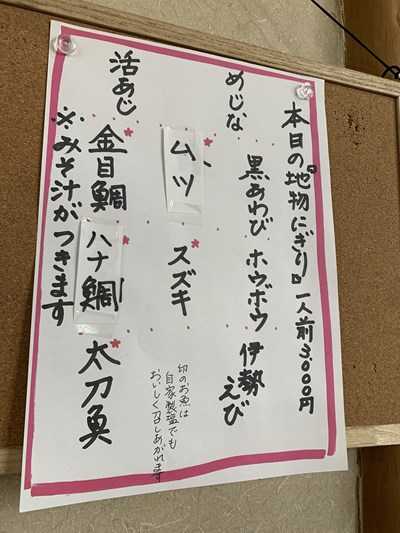 本日の地物にぎり 一人前3,000円
黒あわび ホウボウ 伊勢えび
めじな
ムツ スズキ
活あじ
金目鯛 ハナ鯛 太刀魚
※みそ汁がつきます
印のお魚は
自家製塩でも
おいしく召しあがれます